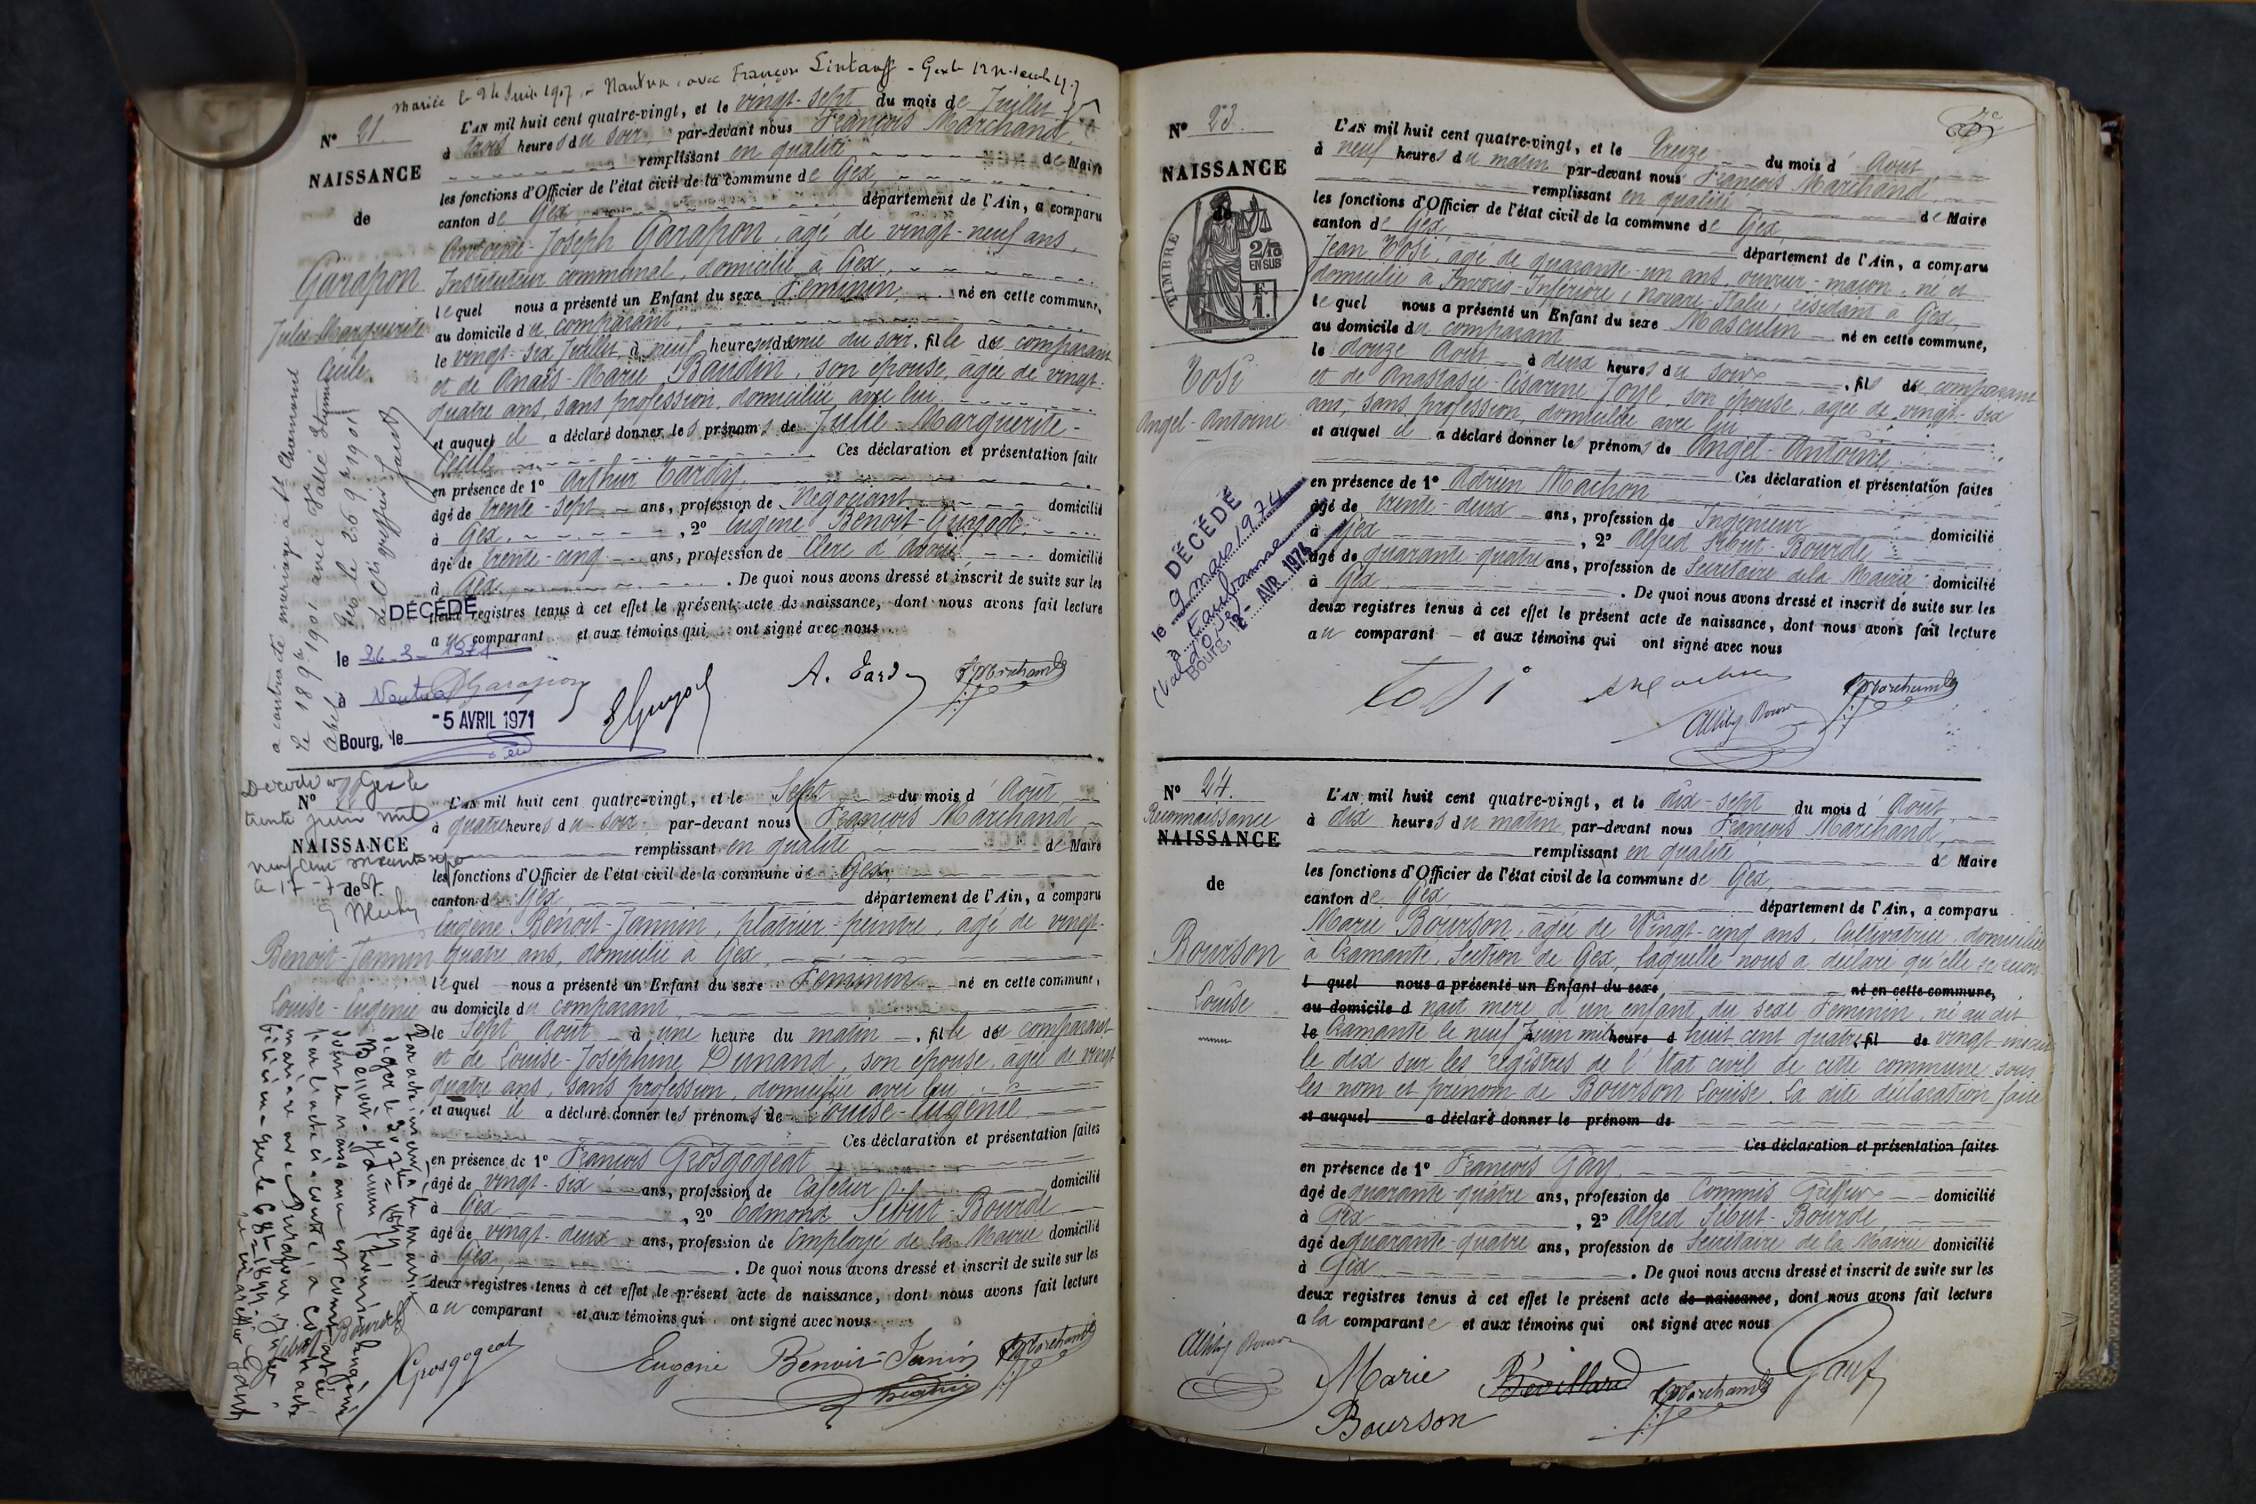 Mariée le 24 Juin 1907, à Nantua, avec François Lintanff - Gex le
N° 21.
NAISSANCE
de
Garapon
Julie-Marguerite
Cécile
L'AN mil huit cent quatre-vingt, et le vingt-sept du mois de Juillet
à trois heures du soir, par-devant nous François Marchand,
remplissant en qualité de Maire
les fonctions d'Officier de l'état civil de la commune de Gex,
canton de Gex département de l'Ain, a comparu
Antoine-Joseph Garapon, âgé de vingt-neuf ans,
Instituteur communal, domicilié à Gex,
lequel nous a présenté un Enfant du sexe Féminin, né en cette commune,
au domicile du comparant,
le vingt-six Juillet à neuf heures et demie du soir, fille du comparant
et de Anaïs-Marie Baudin, son épouse, âgée de vingt-
quatre ans, sans profession, domiciliée avec lui
et auquel il a déclaré donner les prénoms de Julie-Marguerite-
Cécile Ces déclaration et présentation faite
en présence de 1° Arthur Tardy,
âgé de trente-sept ans, profession de Négociant domicilié
à Gex, 2° Eugène Benoit-Guyod,
âgé de trente-cinq ans, profession de Clerc d'avoué domicilié
à Gex, . De quoi nous avons dressé et inscrit de suite sur les
deux registres tenus à cet effet le présent acte de naissance, dont nous avons fait lecture
au comparant et aux témoins qui ont signé avec nous
a contracté mariage à St Chamond
le 18 9bre 1901 avec
Gex le 26 9bre 1901
Le greffier
DÉCÉDÉ
le 26-3-1971
à Nantua
Bourg, le -5 AVRIL 1971
Garapon
E Guyod
A. Tardy
Marchand
Décédée à Gex le
trente juin mil
neuf cent soixante sept
N°
NAISSANCE
de
Benoit-Jannin
Louise-Eugénie
L'AN mil huit cent quatre-vingt, et le Sept du mois d'Août,
à quatre heures du soir, par-devant nous François Marchand
remplissant en qualité de Maire
les fonctions d'Officier de l'état civil de la commune de Gex,
canton de Gex département de l'Ain, a comparu
Eugène Benoit-Jannin, plâtrier-peintre, âgé de vingt-
quatre ans, domicilié à Gex,
lequel nous a présenté un Enfant du sexe Féminin né en cette commune,
au domicile du comparant,
le Sept Août à une heure du matin, fille du comparant
et de Louise-Joséphine Dunand, son épouse, âgée de vingt
quatre ans, sans profession, domiciliée avec lui
et auquel il a déclaré donner les prénoms de Louise-Eugénie
Ces déclaration et présentation faites
en présence de 1° François Grosgogeat
âgé de vingt-six ans, profession de Cafetier domicilié
à Gex, 2° Edmond Sibut-Bourde
âgé de vingt-deux ans, profession de Employé de la Mairie domicilié
à Gex, . De quoi nous avons dressé et inscrit de suite sur les
deux registres tenus à cet effet le présent acte de naissance, dont nous avons fait lecture
au comparant et aux témoins qui ont signé avec nous
Par acte inscrit à la mairie
de Gex le
Benoit-Jannin Louise Eugénie
dont la naissance est constatée
par l'acte ci-contre, a contracté
mariage avec
Sibut Bourde
Grosgogeat
Eugène Benoit-Janin
Marchand
N° 23.
NAISSANCE
TIMBRE
2/10
EN SUS
F
1.
Tosi
Angel-Antoine
L'AN mil huit cent quatre-vingt, et le treize du mois d'Août,
à neuf heures du matin par-devant nous François Marchand,
remplissant en qualité de Maire
les fonctions d'Officier de l'état civil de la commune de Gex
canton de Gex département de l'Ain, a comparu
Jean Tosi, âgé de quarante-un ans, ouvrier-maçon, né et
domicilié à Invorio-Inferiore, Novare, Italie, résidant à Gex,
lequel nous a présenté un Enfant du sexe Masculin né en cette commune,
au domicile du comparant
le douze Août à deux heures du soir, fils du comparant
et de Anastasie-Césarine Joye, son épouse, âgée de vingt-six
ans, sans profession, domiciliée avec lui
et auquel il a déclaré donner les prénoms de Angel-Antoine
Ces déclaration et présentation faites
en présence de 1° Adrien Machon
âgé de trente-deux ans, profession de Ingénieur domicilié
à Gex, 2° Alfred Sibut-Bourde
âgé de quarante-quatre ans, profession de Secrétaire de la Mairie domicilié
à Gex . De quoi nous avons dressé et inscrit de suite sur les
deux registres tenus à cet effet le présent acte de naissance, dont nous avons fait lecture
au comparant et aux témoins qui ont signé avec nous
DÉCÉDÉ
le 9 mars 1974
à Eaubonne
(Val d'Oise)
Bourg, le 2- AVR. 1974
Tosi
A Machon
Marchand
N° 24.
Reconnaissance
NAISSANCE
de
Bourson
Louise
L'AN mil huit cent quatre-vingt, et le dix-sept du mois d'Août,
à dix heures du matin, par-devant nous François Marchand,
remplissant en qualité de Maire
les fonctions d'Officier de l'état civil de la commune de Gex,
canton de Gex département de l'Ain, a comparu
Marie Bourson, âgée de Vingt-cinq ans, Cultivatrice, domiciliée
à Tramante, Section de Gex, laquelle nous a déclaré qu'elle se recon-
l quel nous a présenté un Enfant du sexe né en cette commune,
au domicile d nait mère d'un enfant du sexe Féminin, né au dit
le Tramante le neuf Juin mil heure d huit cent quatre fil de vingt, inscrit
le dix sur les registres de l'Etat civil de cette commune sous
les nom et prénom de Bourson Louise. La dite déclaration faite
et auquel a déclaré donner le prénom de
Ces déclaration et présentation faites
en présence de 1° François Gay,
âgé de quarante-quatre ans, profession de Commis Greffier domicilié
à Gex, 2° Alfred Sibut-Bourde,
âgé de quarante-quatre ans, profession de Secrétaire de la Mairie domicilié
à Gex . De quoi nous avons dressé et inscrit de suite sur les
deux registres tenus à cet effet le présent acte de naissance, dont nous avons fait lecture
à la comparante et aux témoins qui ont signé avec nous
Marie
Bourson
Bévillard
Marchand
Gay